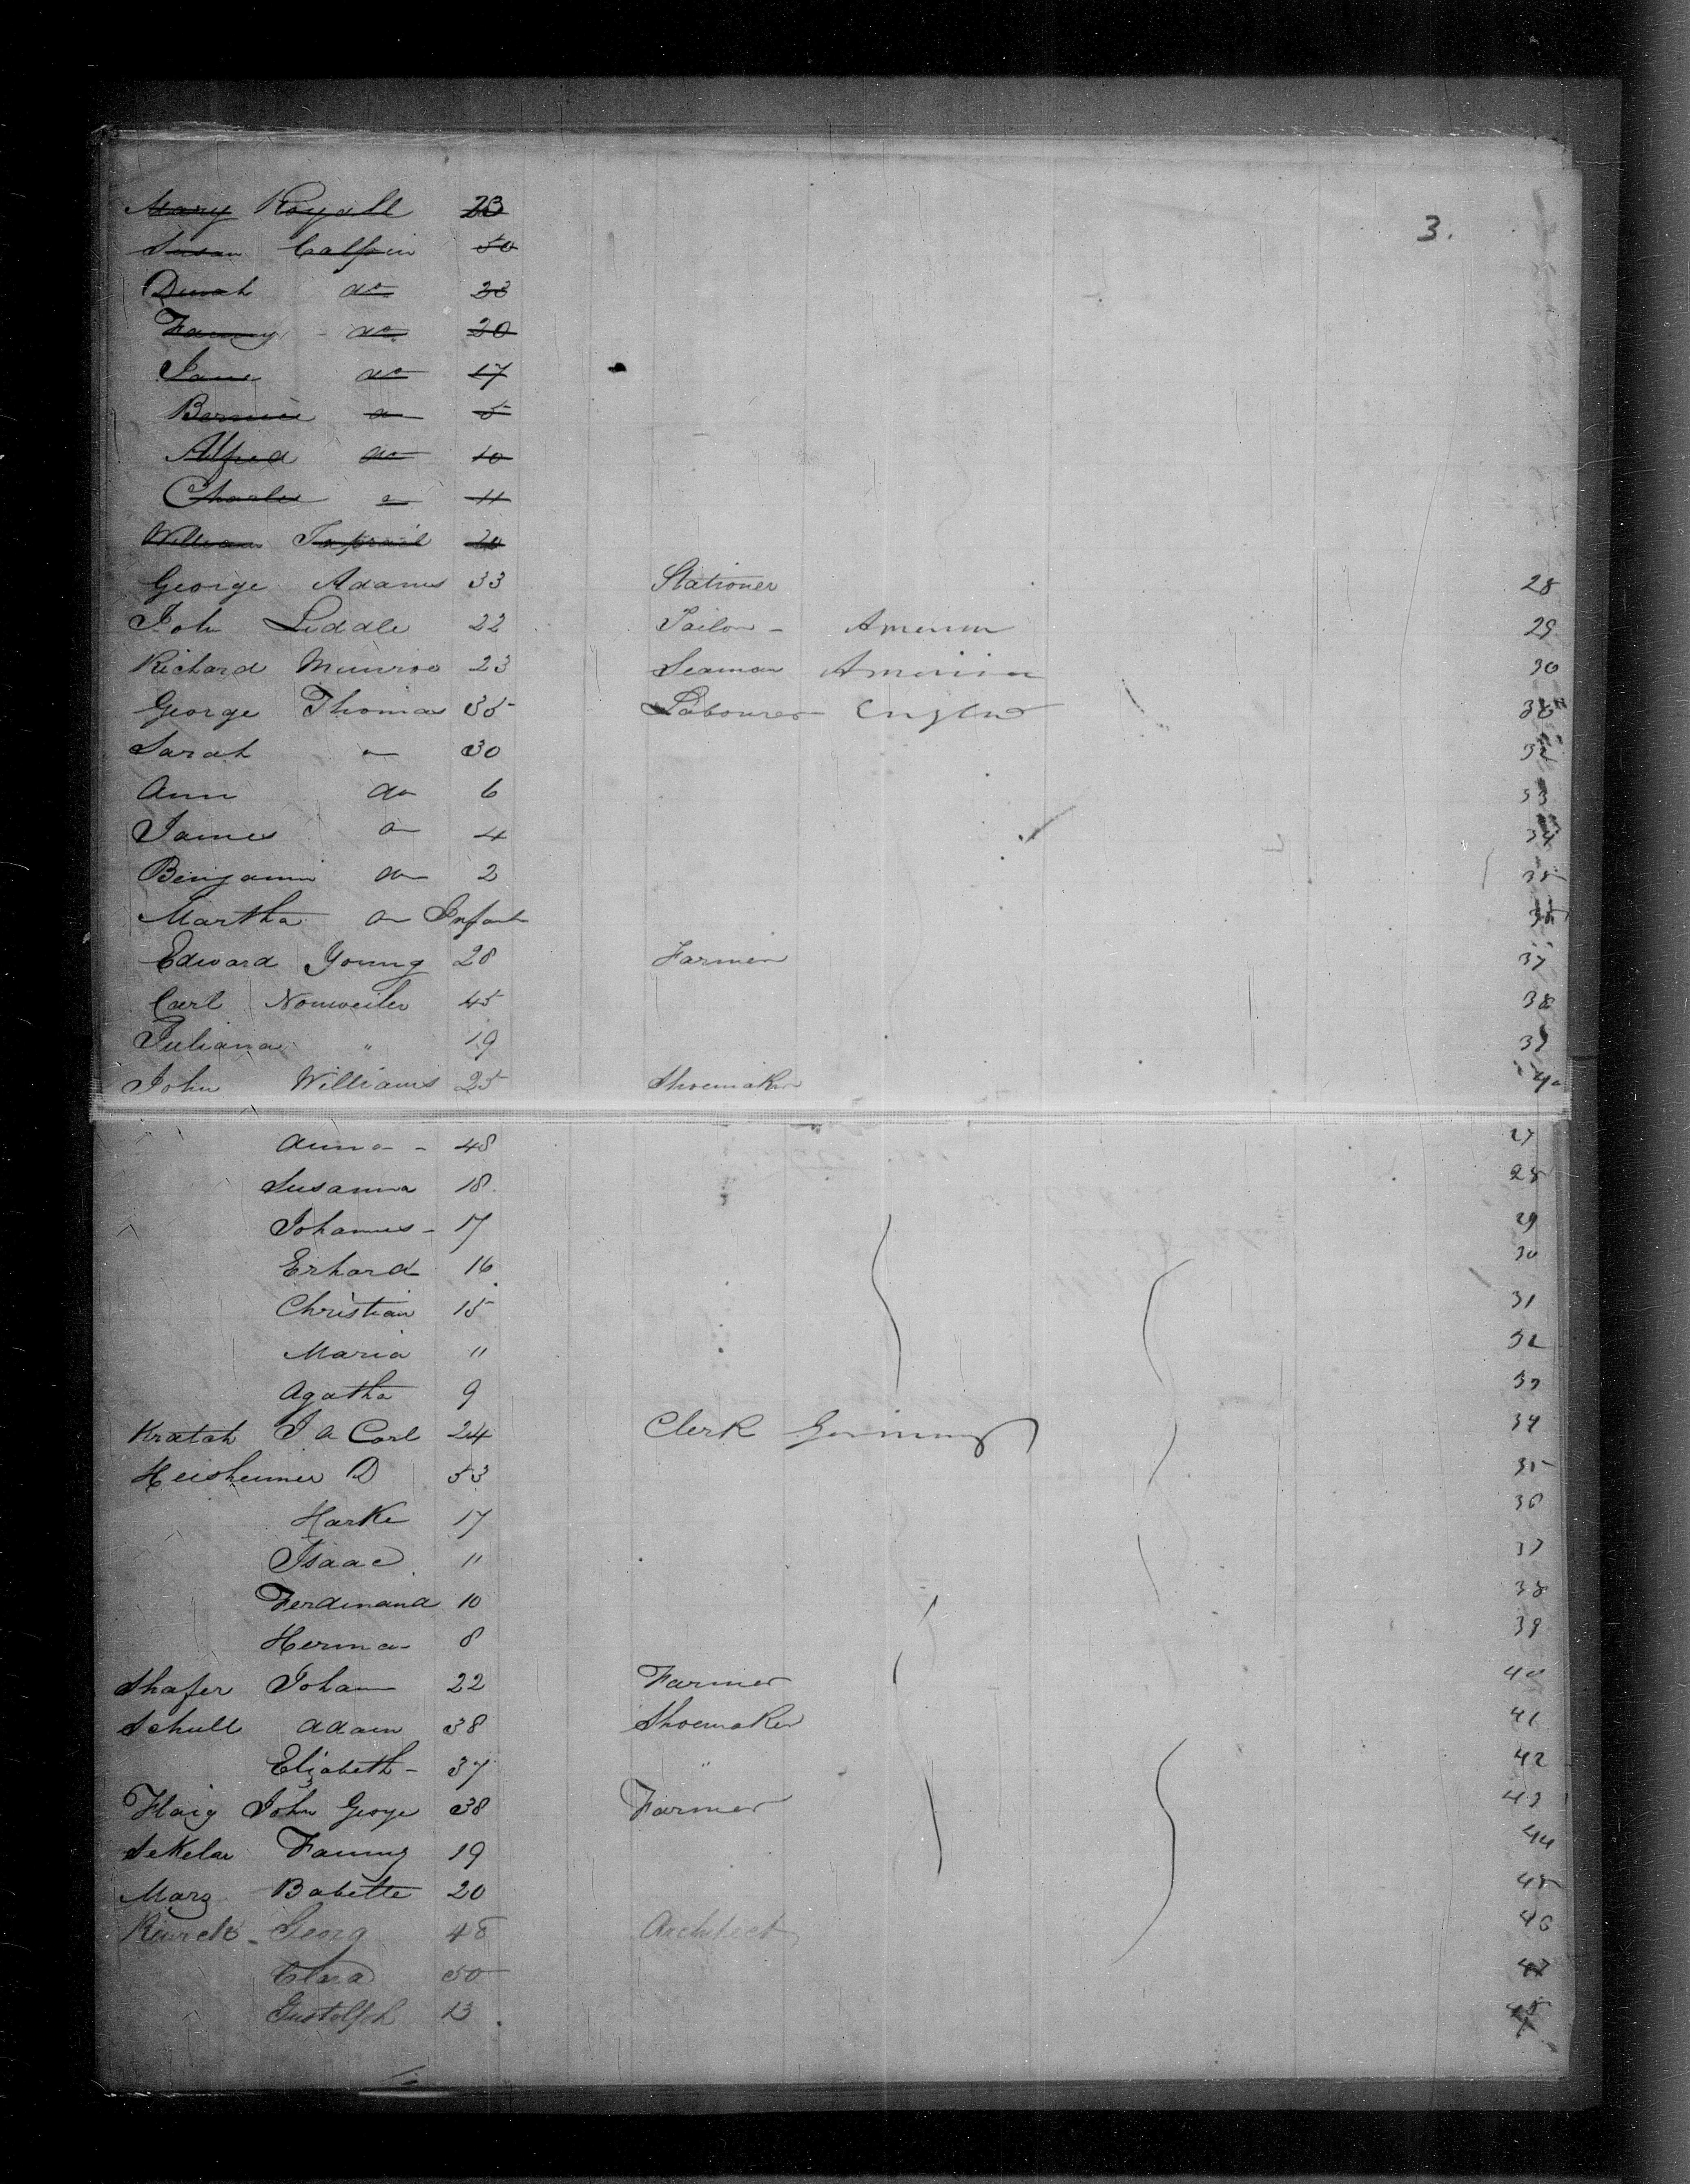 3.
Mary Royall 23
Susan Calpin 50
Dinah do 23
Fanny do 20
Jane do 17
do 5
Alfred do 10
Charles 11
William 20
George Adams 33 Stationer 28
John Liddle 22 Sailor - 29
Richard Munroe 23 Seaman 30
George Thomas 35 Labourer
Sarah 30 32
Ann do 6 33
James do 4 34
Benjamin do 2 35
Martha do Infant 36
Edward Young 28 Farmer 37
Carl Nonweiler 45 38
Juliana " 19 39
John Williams 25 Shoemaker 40
Anna - 48 27
Susanna 18 28
Johannes - 17 29
Erhard 16 30
Christian 15 31
Maria 11 32
Agatha 9 33
Kratah J A Carl 24 Clerk Germany 34
D 53 35
Harke 17 36
Isaac 11 37
Ferdinand 10 38
Herma 8 39
Shafer Johann 22 Farmer 40
Schull Adam 38 Shoemaker 41
Elizabeth - 37 " 42
Haig John George 38 Farmer 43
Sekelar Fanny 19 44
Marg Babette 20 45
Georg 48 Architect 46
Clara 50 47
Gustolph 13 48